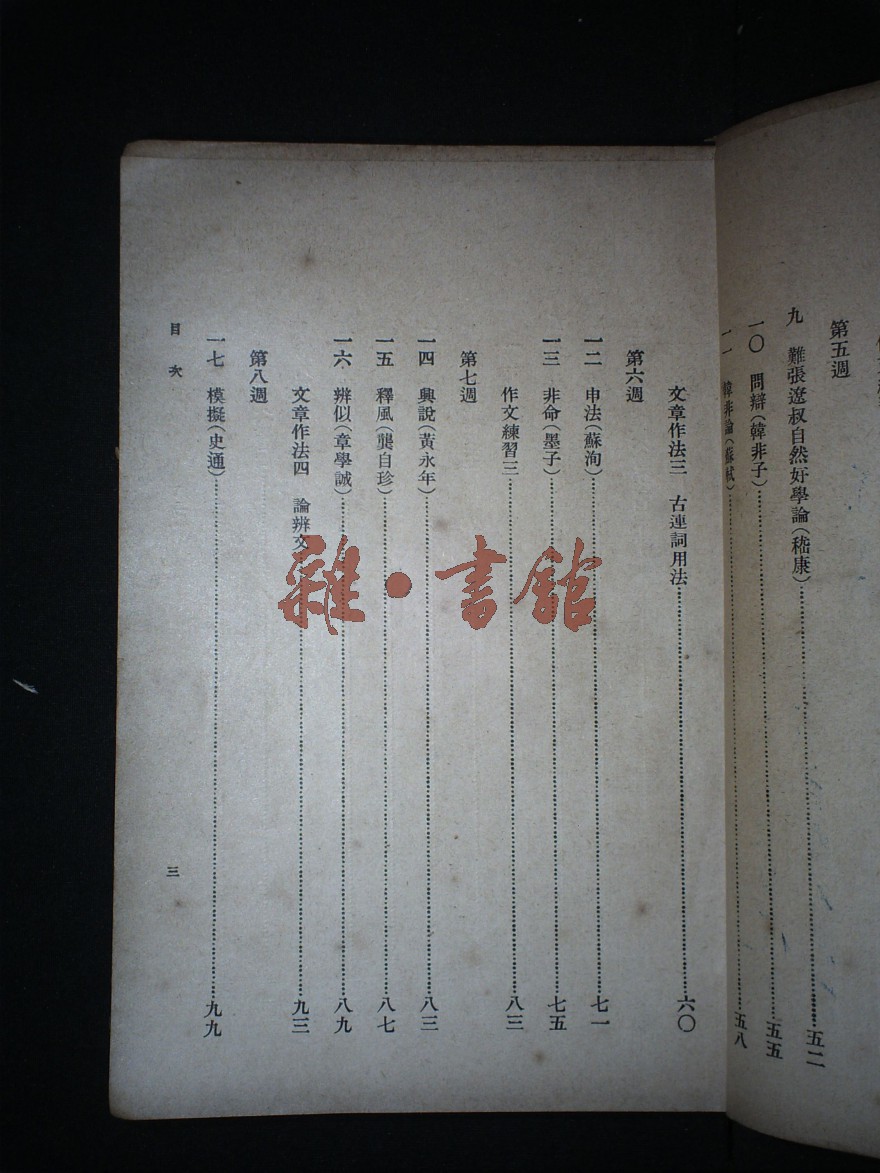 第五週
九　難張遼叔自然好學論（嵇康）……五二
一〇　問辯（韓非子）……五五
一一　韓非論（蘇軾）……五八
文章作法三　古連詞用法……六〇
第六週
一二　申法（蘇洵）……七一
一三　非命（墨子）……七五
作文練習三……八三
第七週
一四　興說（黃永年）……八三
一五　釋風（龔自珍）……八七
一六　辨似（章學誠）……八九
文章作法四　論辨文……九三
第八週
一七　模擬（史通）……九九
目次
三
雜·書館